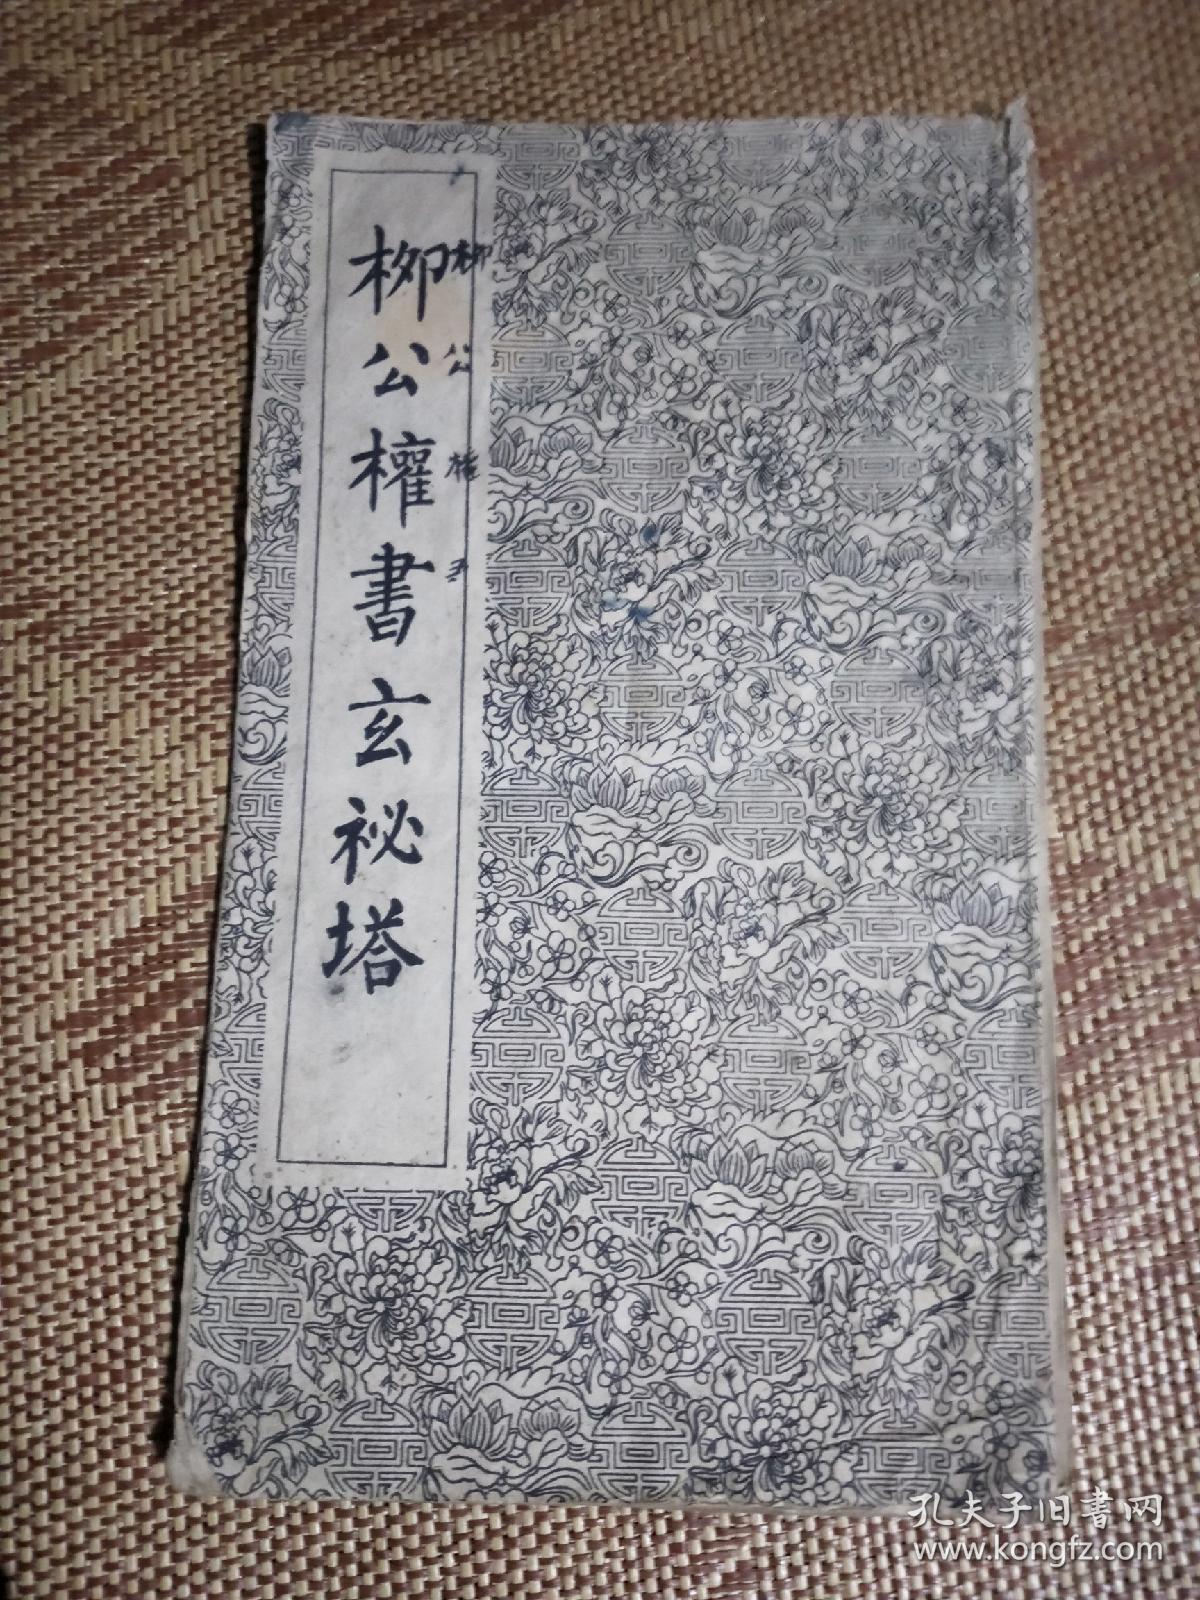 柳公權書玄祕塔
柳公權
孔夫子旧書网
www.kongfz.com